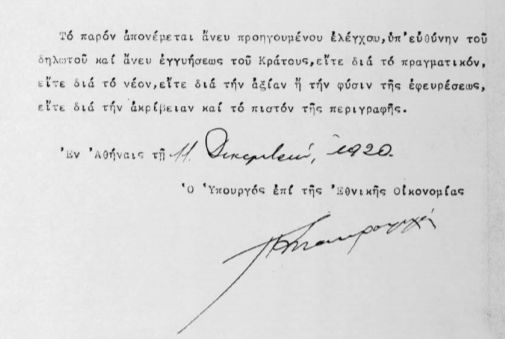 Τό παρόν ἀπονέμεται ἄνευ προηγουμένου ἐλέγχου,ὑπ'εὐθύνην τοῦ
δηλωτοῦ καί ἄνευ ἐγγυήσεως τοῦ Κράτους,εἴτε διά τό πραγματικόν,
εἴτε διά τό νέον,εἴτε διά τήν ἀξίαν ἤ τήν φύσιν τῆς ἐφευρέσεως,
εἴτε διά τήν ἀκρίβειαν καί τό πιστόν τῆς περιγραφῆς.
Ἐν Ἀθήναις τῇ 11 Δεκεμβρίου, 1920.
Ὁ Ὑπουργός ἐπί τῆς Ἐθνικῆς Οἰκονομίας